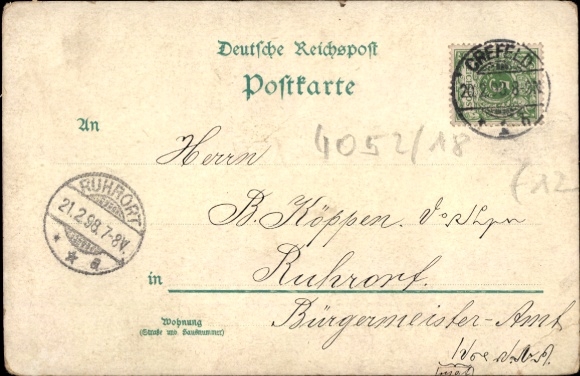 Deutsche Reichspost
Postkarte
CREFELD
20.2.98.8-9N.
* * h
An
4052/18
Herrn
RUHRORT
21.2.98.7-8V.
* * a
B. Köppen.
in Ruhrort.
Wohnung
(Straße und Hausnummer)
Bürgermeister-Amt